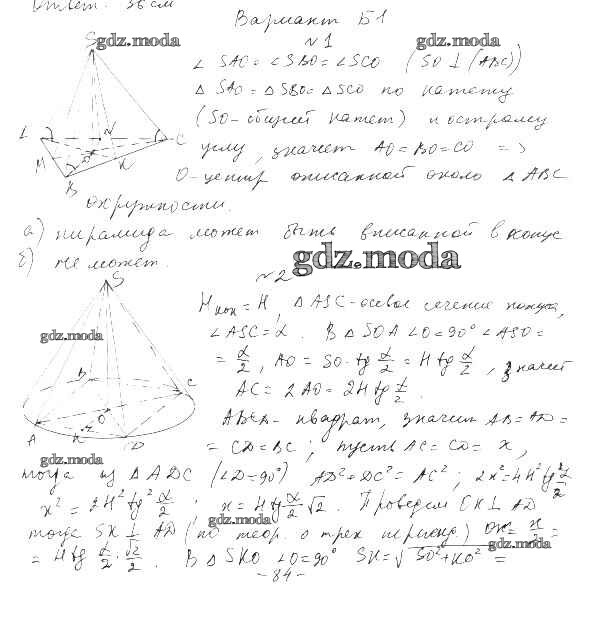 Ответ: 36 см
Вариант Б1
№1
∠ SAO = ∠SBO = ∠SCO (SO ⊥ (ABC))
△ SAO = △ SBO = △ SCO по катету
(SO - общий катет) и острому
углу, значит AO = BO = CO =>
O - центр описанной около △ ABC
окружности.
а) пирамида может быть вписанной в конус
б) не может.
№2
Hкон = H, △ ASC - осевое сечение конуса,
∠ASC = α. В △ SOA ∠O = 90° ∠ASO =
= α/2, AO = SO · tg α/2 = H tg α/2, значит
AC = 2AO = 2H tg α/2.
ABCD - квадрат, значит AB = AD =
= CD = BC; пусть AC = CD = x,
тогда из △ ADC (∠D = 90°) AD² + DC² = AC²; 2x² = 4H² tg² α/2
x² = 2H² tg² α/2; x = H tg α/2 √2. Проведем OK ⊥ AD
тогда SK ⊥ AD (по теор. о трех перпенд.) OK = x/2 =
= H tg α/2 · √2/2. В △ SKO ∠O = 90° SK = √SO² + KO² =
- 84 -
S
A
C
M
N
K
O
B
S
B
C
O
A
K
D
gdz.moda
gdz.moda
gdz.moda
gdz.moda
gdz.moda
gdz.moda
gdz.moda